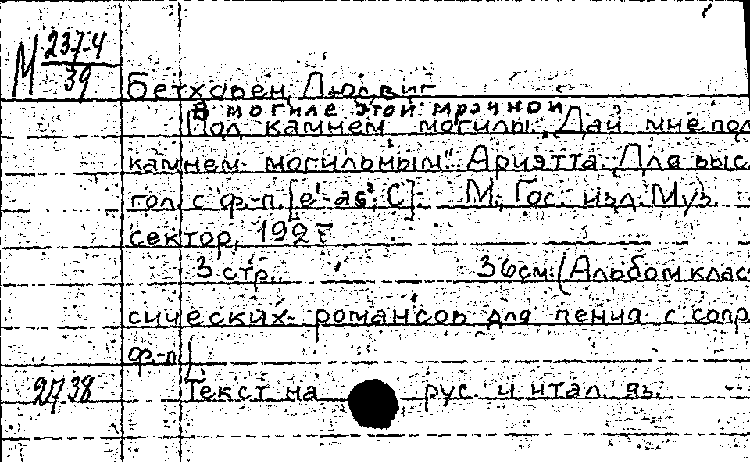 М 237-4
39
Бетховен, Людвиг
В могиле этой мрачной
Под камнем могилы „Дай мне под
камнем могильным". Ариэтта. Для выс.
гол. с ф-п. [e¹-as²; C]. М., Гос. изд. Муз.
сектор, 1927
3 стр. 36см. (Альбом клас
сических романсов для пения с сопр
ф-п)
2738 Текст на рус. и итал. яз.